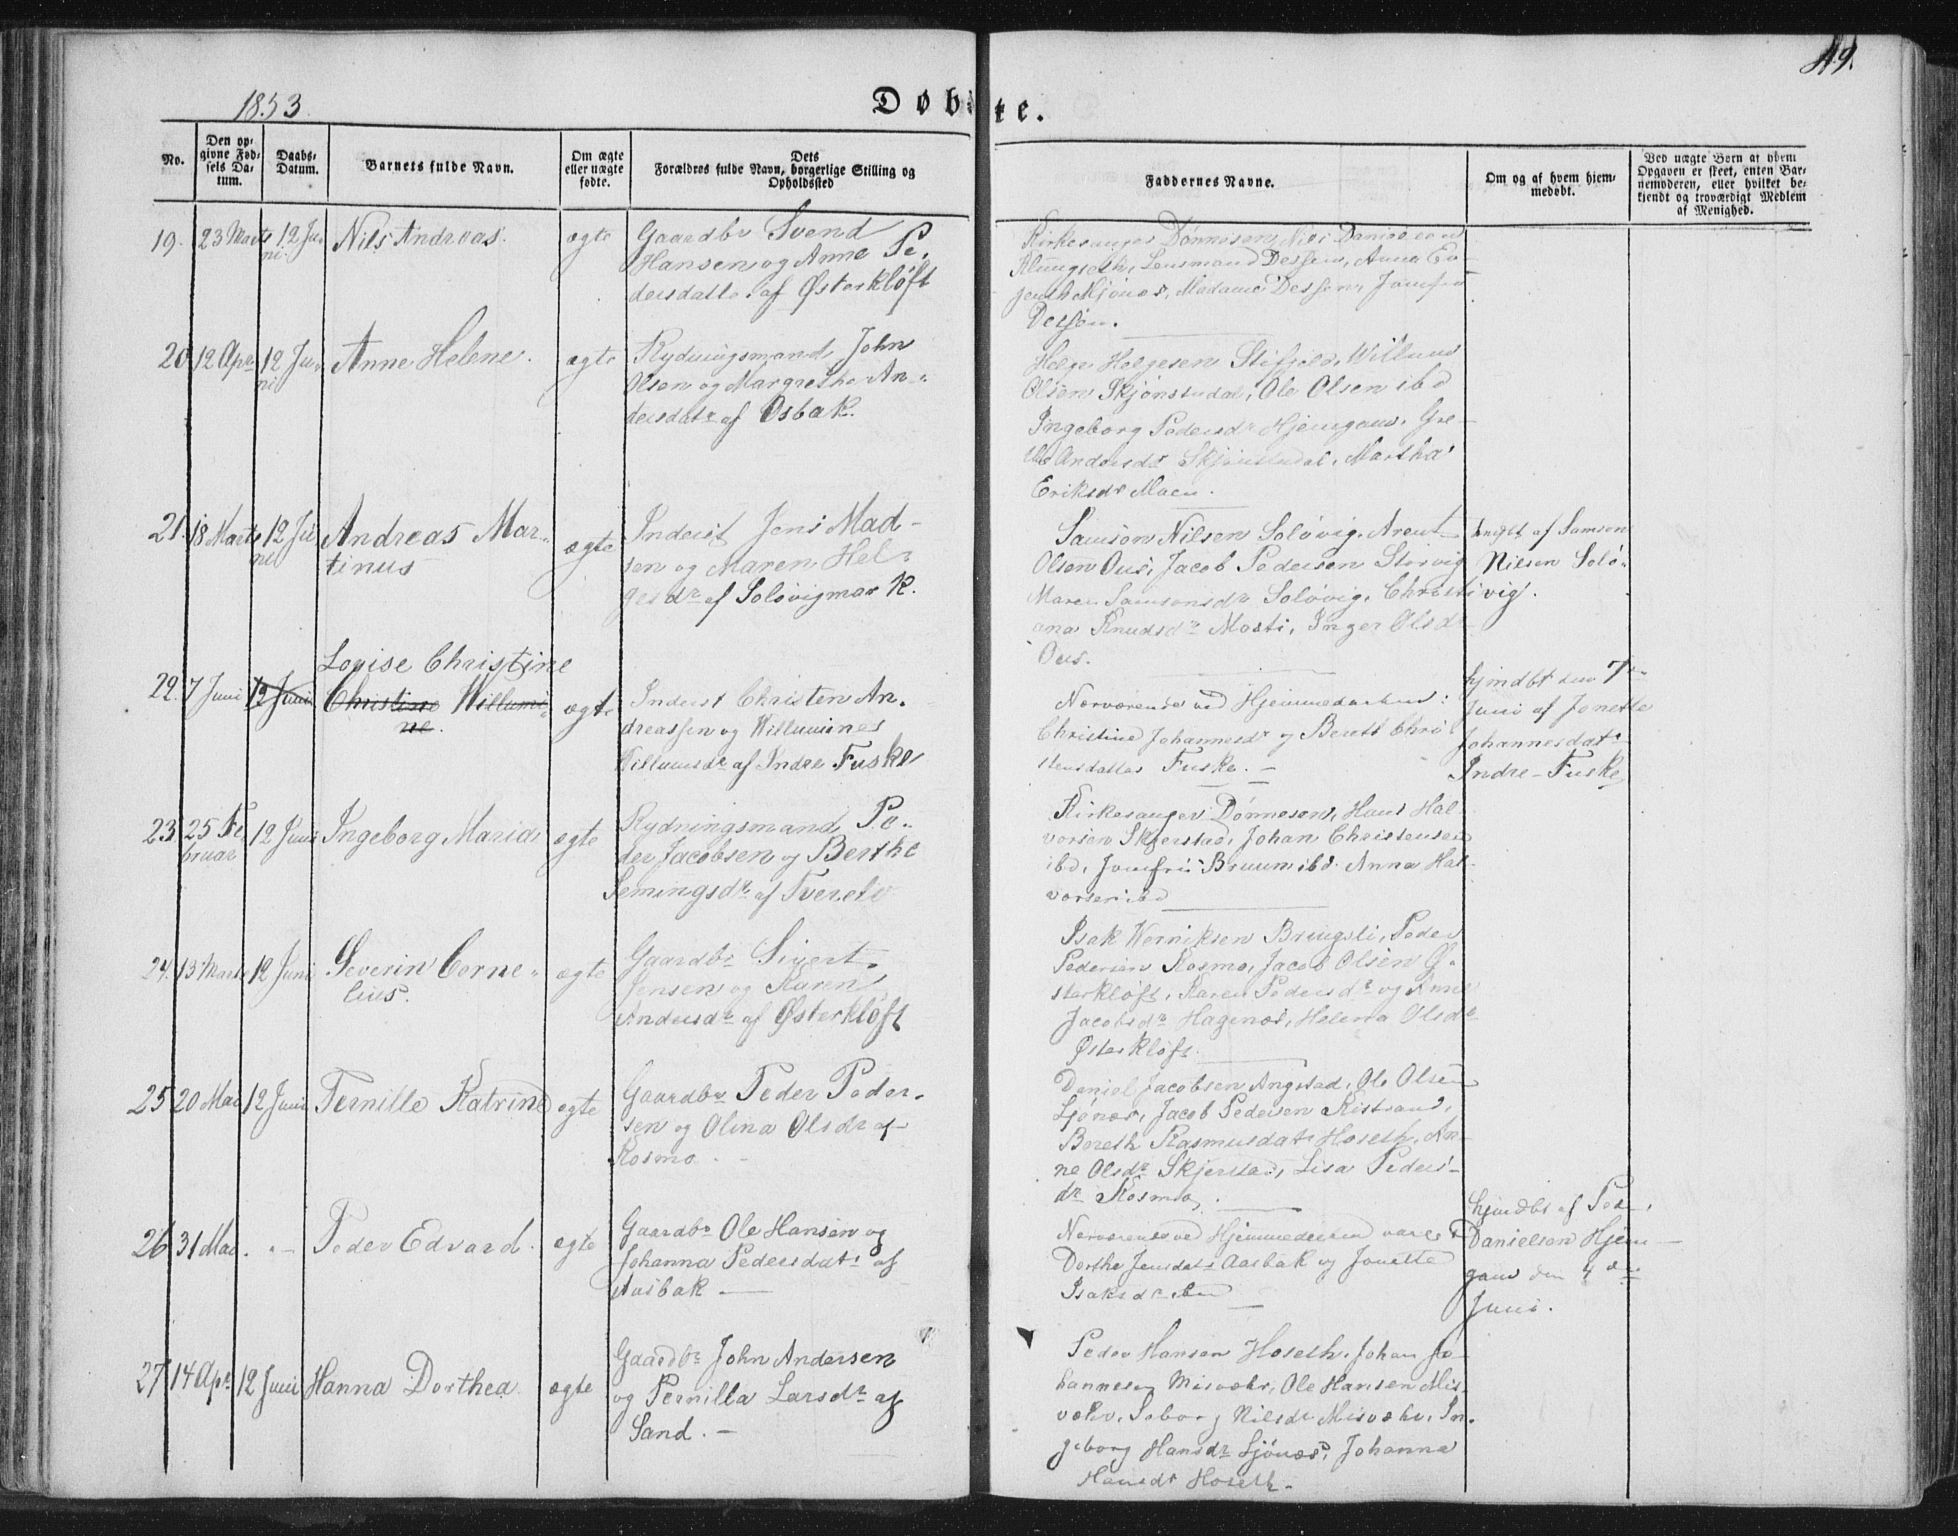 49.
1853.
Døbte.
No.
Den opgivne Fødsels Datum.
Daabs-Datum.
Barnets fulde Navn.
Om ægte eller uægte fødte.
Dets Forældres fulde Navn, borgerlige Stilling og Opholdssted
Faddernes Navne.
Om og af hvem hjemmedøbt.
Ved uægte Børn at ybem Opgaven er skeet, enten Barnemoderen, eller hvilket bekjendt og troværdigt Medlem af Menighed.
19. 23 Marts 12 Juni Nils Andreas. ægte
Gaardbr Svend
Hansen og Anne Pe-
dersdatte. af Østerkløft
Kirkesanger Dønnesen, Nils Daniel
Klungseth, Lensmand Dessen, Anne
Mjønes, Madame Dessen, Jomfru
Dessen.
20 12 Apr 12 Juni Anne Helene. ægte
Rydningsmand John
Olsen og Margrethe An-
dersdatr af Osbak.
Helge Helgesen Stifjeld, Willum
Olsen Skjønstudal, Ole Olsen ibd
Ingeborg Pedersdr Hjemgam, Gre-
the Andersdr Skjønstudal, Martha
Eriksdr Moen.
21. 18 Marts 12 Juni Andreas Mar-
tinus ægte
Inderst Jens Mad-
sen og Maren Hel-
gesdr af Soløvigmark.
Samson Nilsen Soløvig, Arent
Olsen Ous, Jacob Pedersen Storvig
Maren Samsonsdr Soløvig, Christi
ana Knudsdr Mosti, Inger Olsdr
Ous.
af Samson
Nilsen Solø-
vig.
22. 7 Juni 12 Juni Lovise Christine
Christine Willumi-
ne. ægte
Inderst Christen An-
dreassen og Willumine
Villumsdr af Indre Fuske
Nærværende ved Hjemmedaaben:
Christine Johannesdr og Berett Chri
stensdatter Fuske. —
hjmdbt den 7de
Juni af Jonette
Johannesdatr
Indre-Fuske
23 25 Februar 12 Juni Ingeborg Maria ægte
Rydningsmand Pe-
der Jacobsen og Berthe
Semingsdr af Tverelv
Kirkesanger Dønnesen, Hans Hal
vorsen Skjerstad, Johan Christensen
ibd, Jomfru Bruun ibd. Anna Hal-
vorsen ibd
24. 13 Marts 12 Juni Severin Corne-
lius. ægte
Gaardbr Sivert
Jensen og Karen
Andersdr af Østerkløft
Isak Werniksen Bringsli, Peder
Pedersen Kosmo, Jacob Olsen Ø-
sterkløft, Karen Pedersdr og Anne
Jacobsdr Hagenæs, Helena Olsdr
Østerkløft.
25 20 Mai 12 Juni Pernille Katrine ægte
Gaardbr Peder Peder-
sen og Olina Olsdr af
Kosmo.
Daniel Jacobsen Angstad, Ole Olsen
Ljønes, Jacob Pedersen Kistrand,
Bereth Rasmusdatr Hoseth, An-
ne Olsdr Skjerstad, Lisa Peders-
dr Kosmo.
26 31 Mai. — Peder Edvard. ægte
Gaardbr Ole Hansen og
Johanna Pedersdatr af
Ausbak —
Nærværende ved Hjemmedaaben vare
Dorthe Jensdatr Aasbak og Jonette
Isaksdr ibd
hjmdbt af Peder
Danielsen Hjem-
gam den 4de
Juni.
27 14 Apr. 12 Juni Hanna Dorthea. ægte
Gaardbr John Andersen
og Pernilla Larsdr af
Sand. —
Peder Hansen Hoseth, Johan Jo-
hannesen Misvær, Ole Hansen Mis-
vær, Nilsdr Misvær, In-
geborg Hansdr Ljønes, Johanna
Hansdr Hoseth.